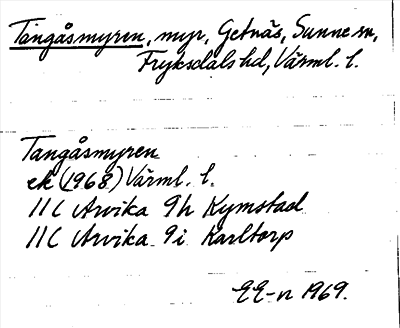 Tångåsmyren, myr, Getnäs, Sunne sn,
Fryksdals hd, Värml. l.
Tangåsmyren
ek (1968) Värml. l.
11C Arvika 9h Kymstad
11C Arvika 9i Karltorp
EE-n 1969.